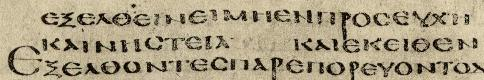 ΕΞΕΛΘΕΙΝΕΙΜΗΕΝΠΡΟΣΕΥΧΗ
ΚΑΙΝΗΣΤΕΙΑ ΚΑΙΕΚΕΙΘΕΝ
ΕΞΕΛΘΟΝΤΕΣΠΑΡΕΠΟΡΕΥΟΝΤΟΔ